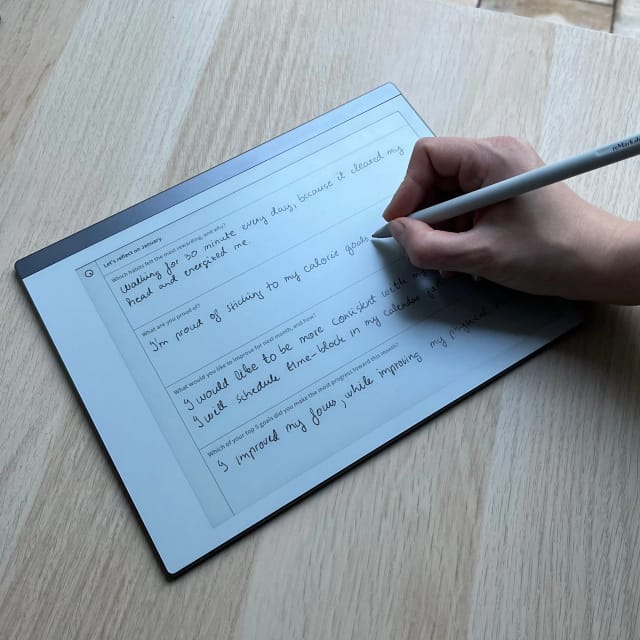 Let's reflect on January.
Which habits felt the most rewarding, and why?
Walking for 30 minute every day, because it cleared my
head and energized me.
What are you proud of?
I'm proud of sticking to my calorie goals
What would you like to improve for next month, and how?
I would like to be more consistent with
I will schedule time-block in my calendar
Which of your top 5 goals did you make the most progress toward this month?
I improved my focus, while improving my physical
reMarkable